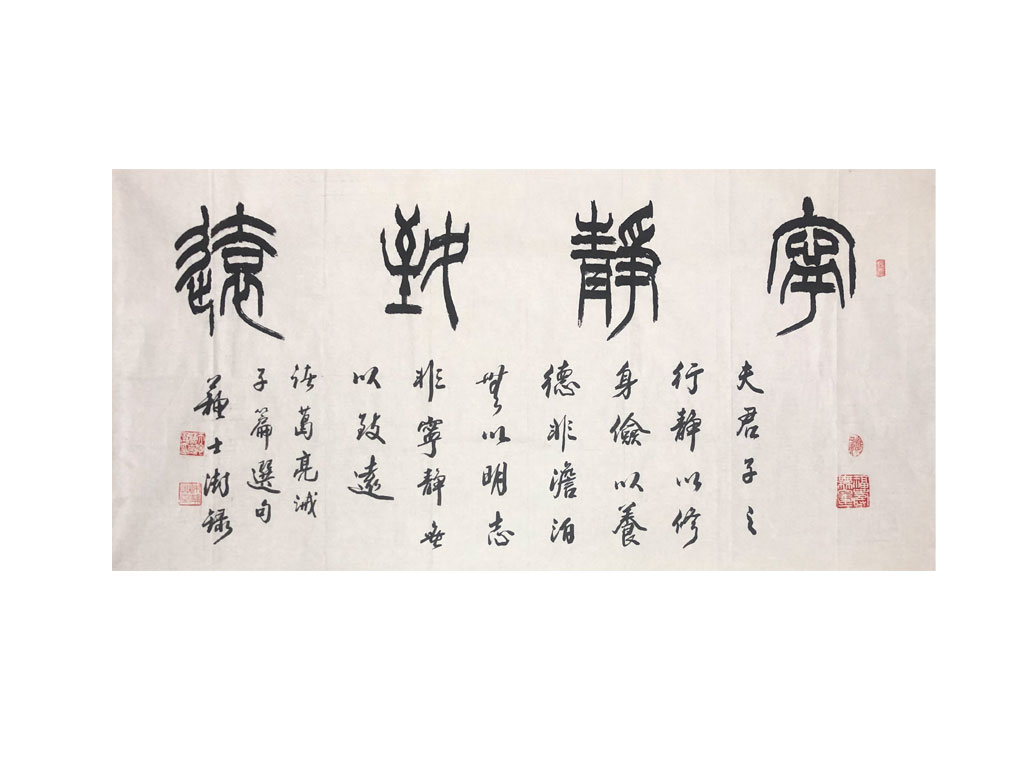 寧靜致遠
夫君子之
行静以修
身儉以養
德非澹泊
無以明志
非寧静無
以致遠
諸葛亮誡
子篇選句
蘇士澍録